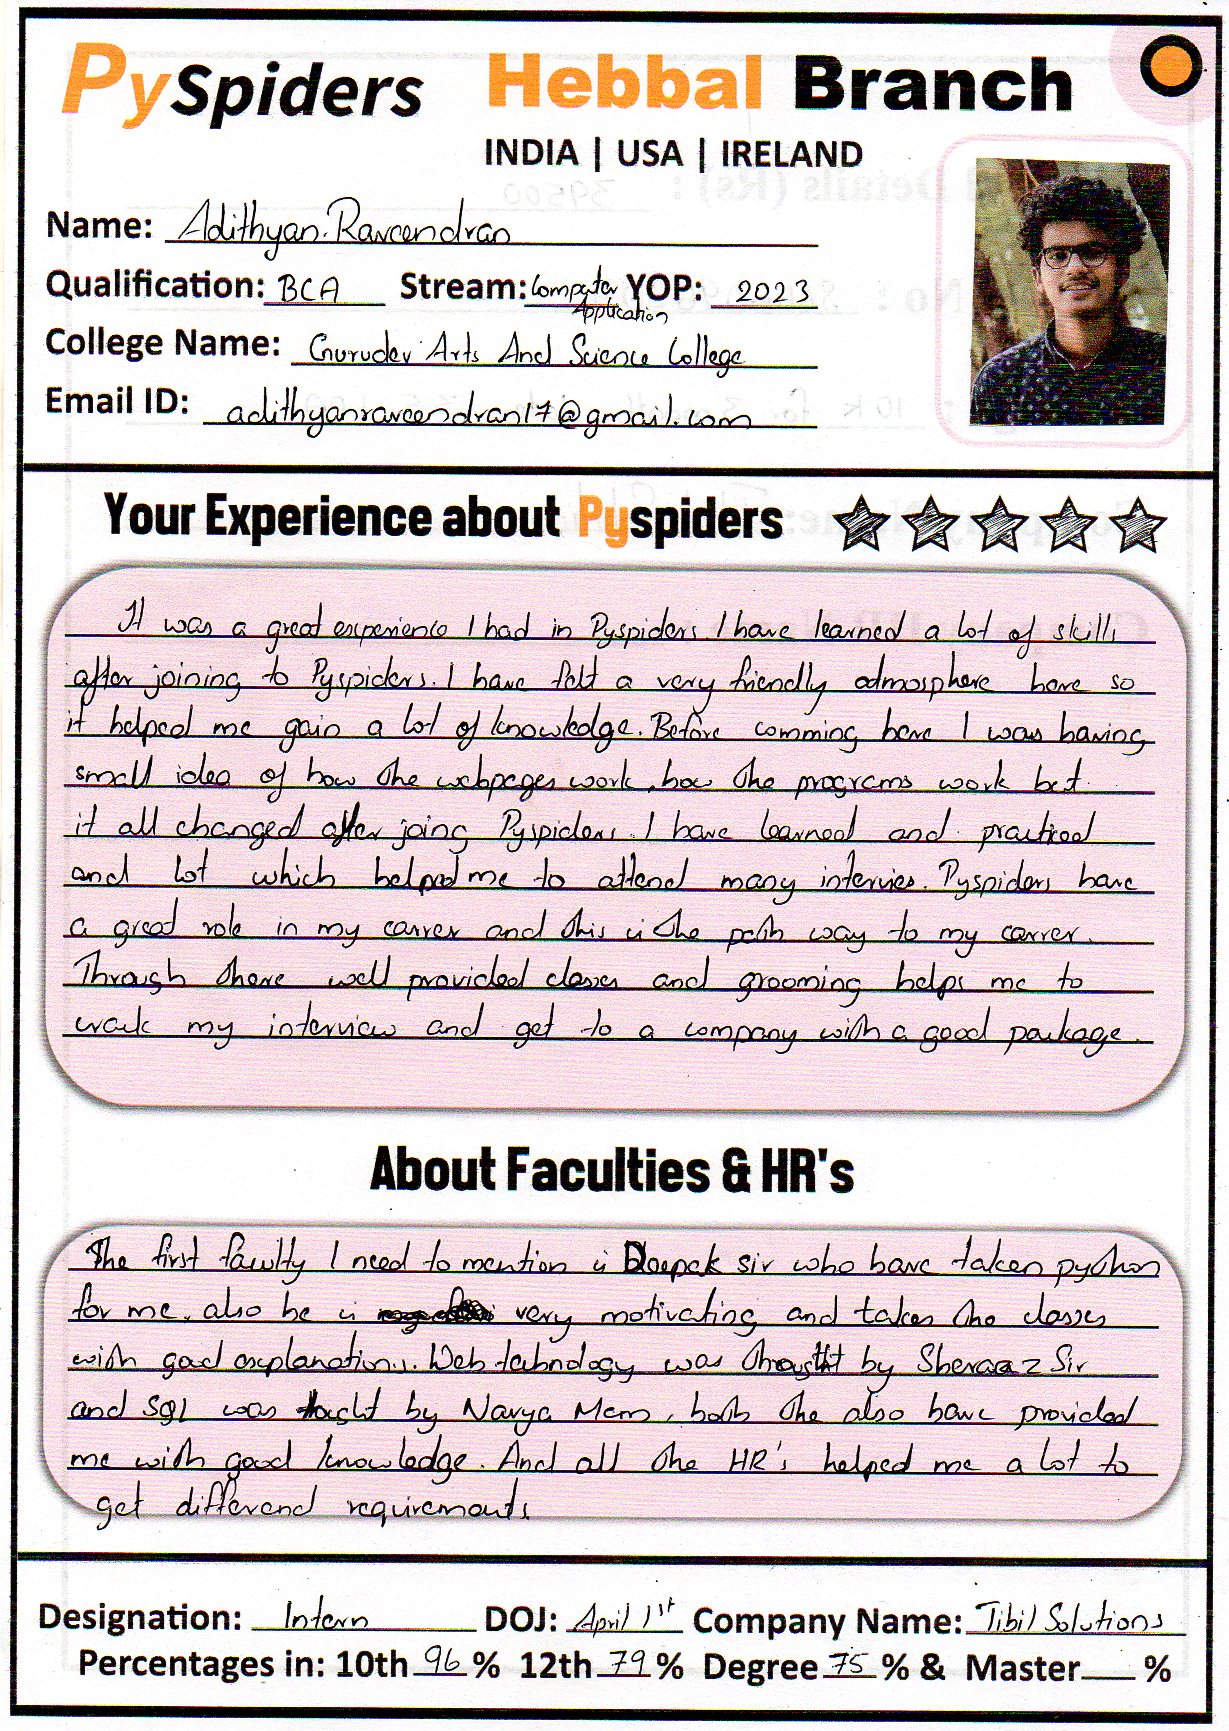 PySpiders Hebbal Branch
INDIA | USA | IRELAND
Name: Adithyan.Raveendran
Qualification: BCA Stream: Computer Application YOP: 2023
College Name: Gurudev Arts And Science College
Email ID: adithyanraveendran17@gmail.com
Your Experience about Pyspiders
It was a great experience I had in Pyspiders. I have learned a lot of skills
after joining to Pyspiders. I have felt a very friendly atmosphere here so
it helped me gain a lot of knowledge. Before comming here I was having
small idea of how the webpages work, how the programs work but
it all changed after joing Pyspiders. I have learned and practiced
and lot which helped me to attend many intervies. Pyspiders have
a great role in my carrer and this is the path way to my carrer.
Through there well provided classes and grooming helps me to
crack my interview and get to a company with a good package.
About Faculties & HR's
The first faculty I need to mention is Deepak sir who have taken python
for me. also he is very motivating and takes the classes
with good explanations. Web technology was by Sheraaz Sir
and SQL was taught by Navya Mam, both the also have provided
me with good knowledge. And all the HR's helped me a lot to
get differend requirements.
Designation: Intern DOJ: April 1st Company Name: Tibil Solutions
Percentages in: 10th 96 % 12th 79 % Degree 75 % & Master %